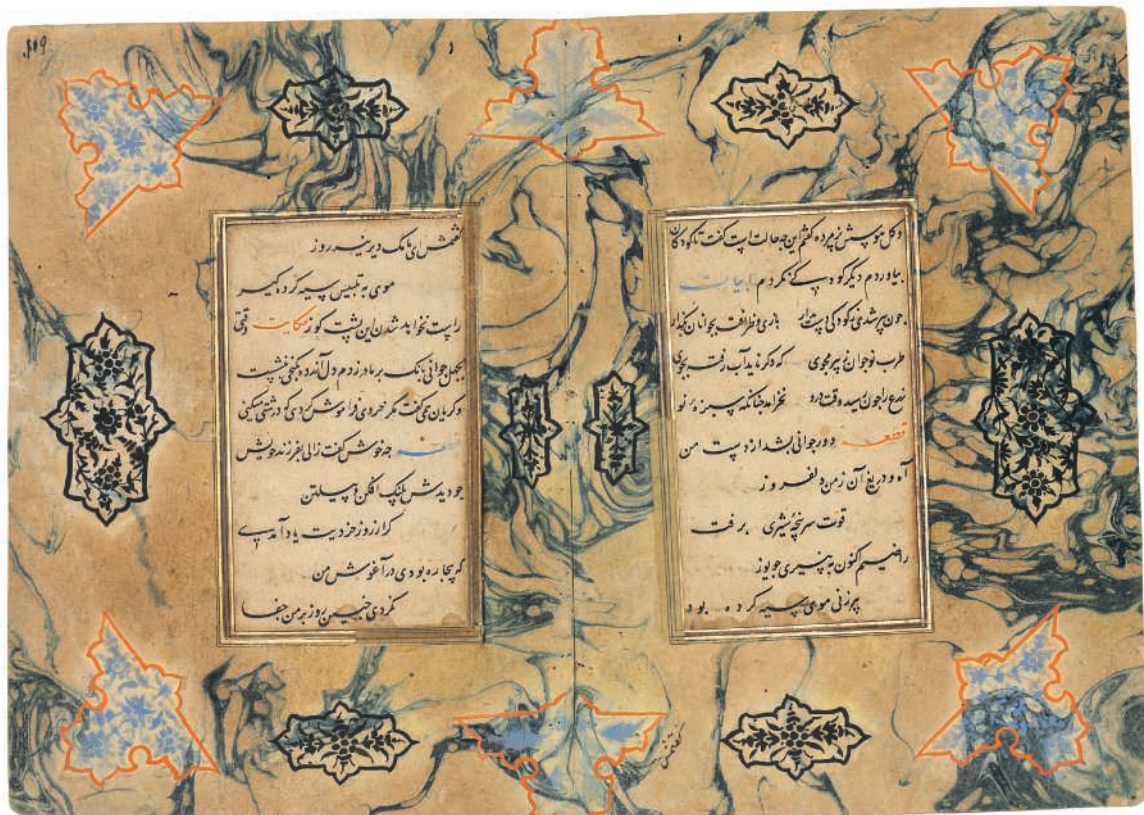 و گل هوسش پژمرده گفتم این چه حالت است گفت تا کودکان
بیاوردم دیگر کودکی نکردم ابیات
چون پیر شدی ز کودکی دست بدار بازی و ظرافت بجوانان بگذار
طرب نوجوان ز پیر مجوی که دگر ناید آب رفته بجوی
زرع را چون رسید وقت درو نخرامد چنانکه سبزهٔ نو
قطعه دور جوانی بشد از دست من
آه و دریغ آن زمن دلفروز
قوت سرپنجهٔ شیری برفت
راضیم کنون به پنیری چو یوز
پیرزنی موی سیه کرده بود
گفتمش
گفتمش ای مامک دیرینه روز
موی به تلبیس سیه کرده گیر
راست نخواهد شدن این پشت کوز حکایت وقتی
بجهل جوانی بانک بر مادر زدم دل آزرده بکنجی نشست
و گریان همی گفت مگر خردی فراموش کردی که درشتی میکنی
قطعه چه خوش گفت زالی بفرزند خویش
چو دیدش پلنک افکن و پیلتن
گر از روز خردیت یاد آمدی
که بیچاره بودی در آغوش من
نکردی چنین روز بر من جفا